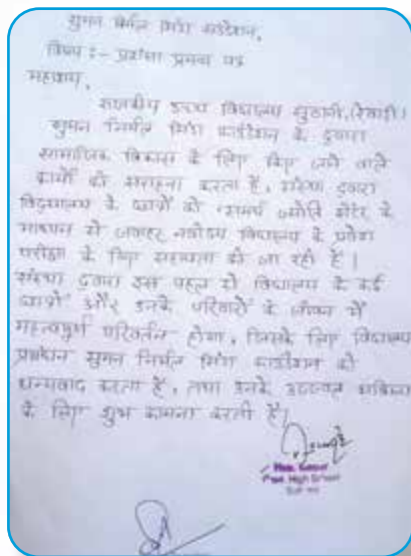 सुमन निर्मल मिंडा फाउंडेशन,
विषय :- प्रशंसा प्रमाण पत्र
महोदय,
राजकीय उच्च विद्यालय सुठानी, (रेवाड़ी)
सुमन निर्मल मिंडा फाउंडेशन के द्वारा
सामाजिक विकास के लिए किए जाने वाले
कार्यो की सराहना करता है, संस्था द्वारा
विद्यालय के छात्रों को समर्थ ज्योति सेंटर के
माध्यम से जवाहर नवोदय विद्यालय के प्रवेश
परीक्षा के लिए सहायता की जा रही है।
संस्था द्वारा इस पहल से विद्यालय के कई
छात्रों और उनके परिवारों के जीवन में
महत्वपूर्ण परिवर्तन होगा, जिसके लिए विद्यालय
प्रबंधन सुमन निर्मल मिंडा फाउंडेशन को
धन्यवाद करता है, तथा उनके उज्जवल भविष्य
के लिए शुभ कामना करती है।
High School